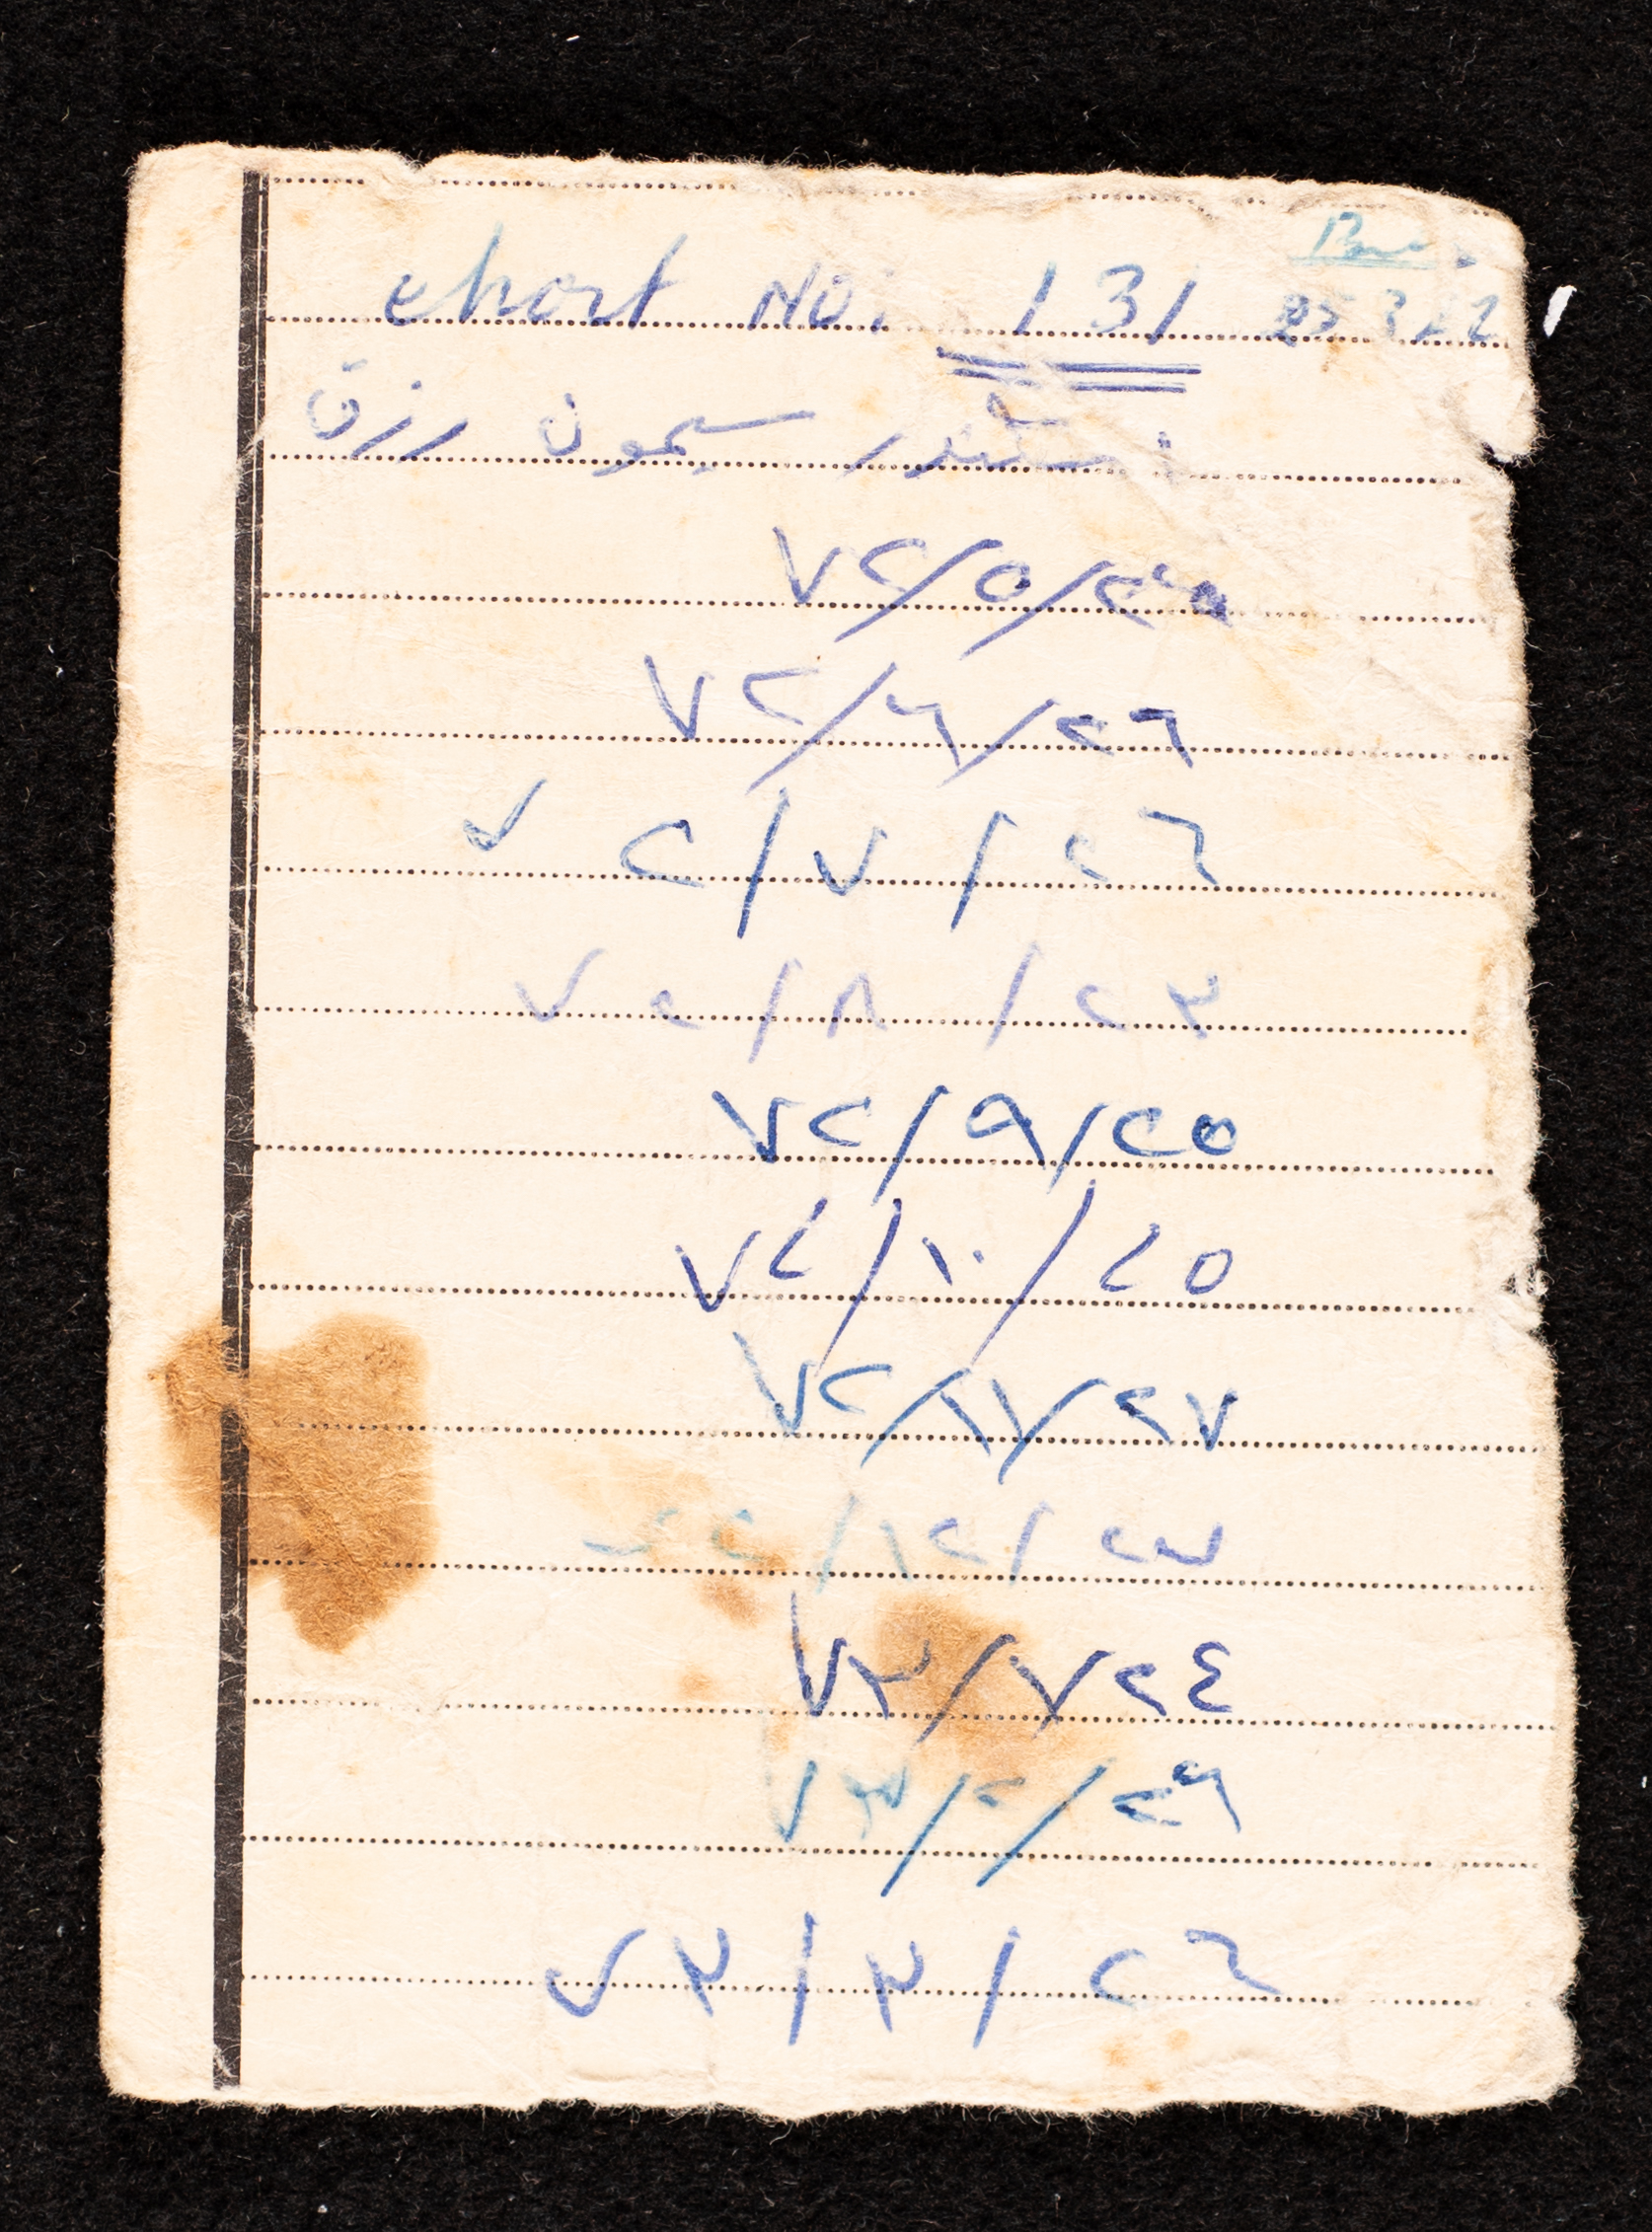 chart No: 131
سيمون رزق
٧٢/٥/٢٩
٧٢/٦/٢٦
٧٢/٧/٢٦
٧٢/٨/٢٣
٧٢/٩/٢٥
٧٢/١٠/٢٥
٧٢/١١/٢٧
٧٢/١٢/٢٧
٧٣/١/٢٤
٧٣/٢/٢٩
٧٣/٣/٢٦